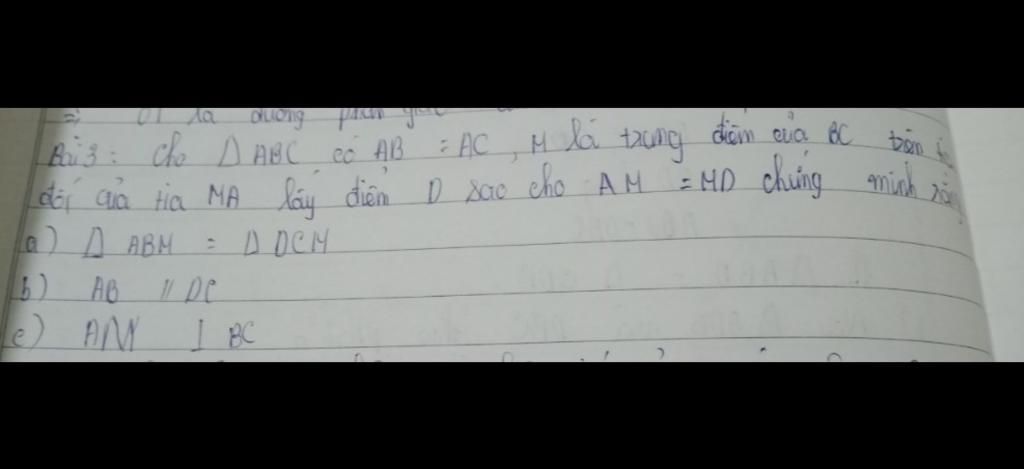 là đường phân
Bài 3: Cho Δ ABC có AB = AC, M là trung điểm của BC trên
đối của tia MA lấy điểm D sao cho AM = MD chứng minh
a) Δ ABM = Δ DCM
b) AB // DC
c) AM ⊥ BC